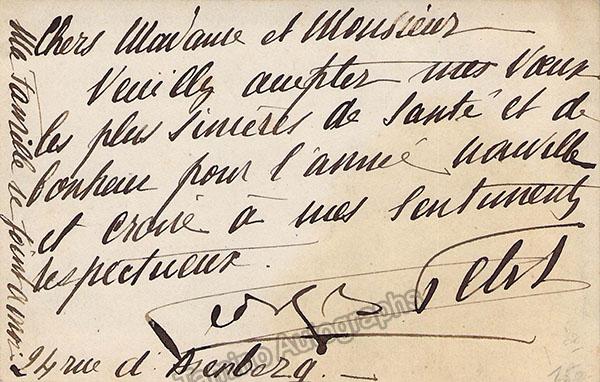 Chers Madame et Monsieur
Veuillez accepter mes Vœux
les plus sincères de Santé et de
bonheur pour l'année nouvelle
et croire à mes Sentiments
respectueux.
Georges
24 rue d'
Ma famille se joint à moi
Tamino Autographs